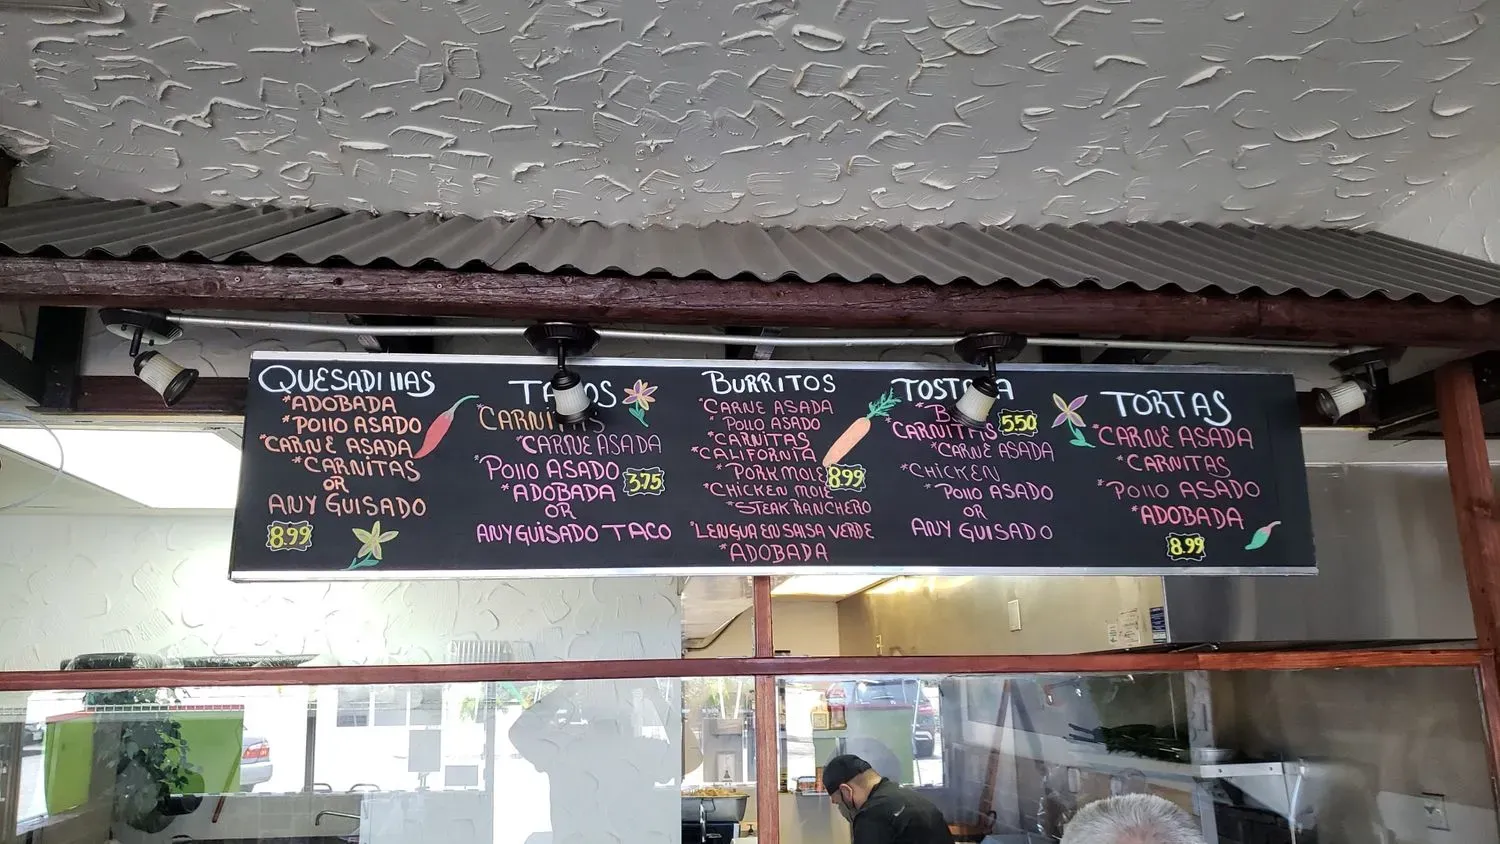 QUESADIllAS
*ADOBADA
*POllO ASADO
*CARNE ASADA
*CARNITAS
OR
ANY GUISADO
8.99
*CARNITAS
*CARNE ASADA
*POllO ASADO
3.75
*ADOBADA
OR
ANY GUISADO TACO
BURRITOS
*CARNE ASADA
*POLLO ASADO
*CARNITAS
*CALIFORNIA
*PORK MOLE
8.99
*CHICKEN MOLE
*STEAK RANCHERO
*LENGUA EN SALSA VERDE
*ADOBADA
5.50
CARNITAS
*CARNE ASADA
*CHICKEN
*POllO ASADO
OR
ANY GUISADO
TORTAS
*CARNE ASADA
*CARNITAS
*POllO ASADO
*ADOBADA
8.99